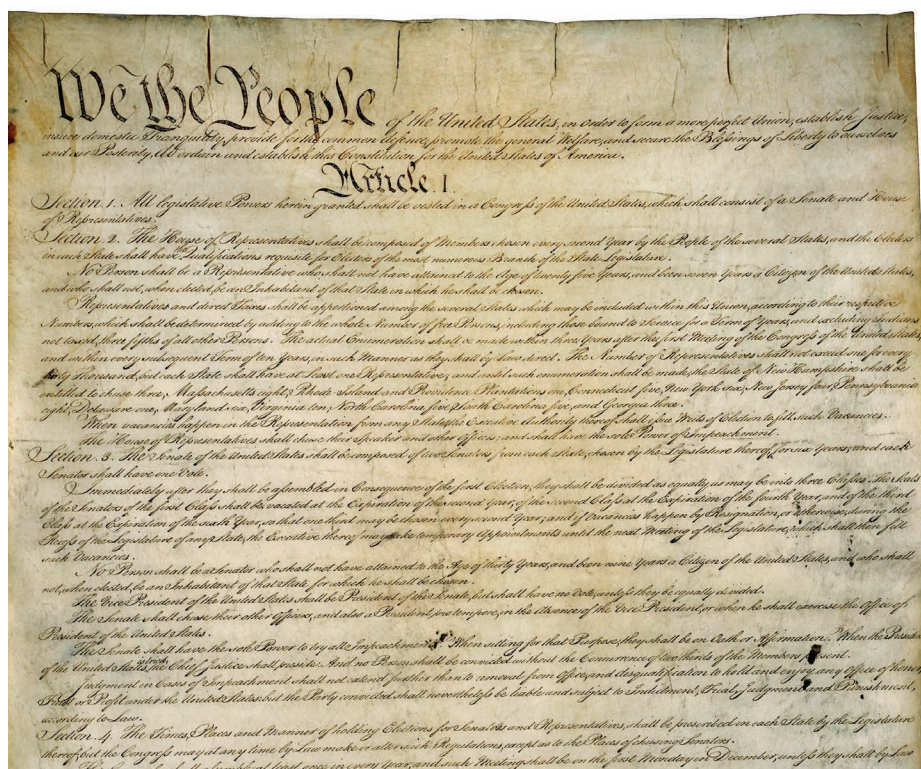 We the People of the United States, in Order to form a more perfect Union, establish Justice,
insure domestic Tranquility, provide for the common defence, promote the general Welfare, and secure the Blessings of Liberty to ourselves
and our Posterity, do ordain and establish this Constitution for the United States of America.
Article. I.
Section. 1. All legislative Powers herein granted shall be vested in a Congress of the United States, which shall consist of a Senate and House
of Representatives.
Section. 2. The House of Representatives shall be composed of Members chosen every second Year by the People of the several States, and the Electors
in each State shall have the Qualifications requisite for Electors of the most numerous Branch of the State Legislature.
No Person shall be a Representative who shall not have attained to the Age of twenty five Years, and been seven Years a Citizen of the United States,
and who shall not, when elected, be an Inhabitant of that State in which he shall be chosen.
Representatives and direct Taxes shall be apportioned among the several States which may be included within this Union, according to their respective
Numbers, which shall be determined by adding to the whole Number of free Persons, including those bound to Service for a Term of Years, and excluding Indians
not taxed, three fifths of all other Persons. The actual Enumeration shall be made within three Years after the first Meeting of the Congress of the United States,
and within every subsequent Term of ten Years, in such Manner as they shall by Law direct. The Number of Representatives shall not exceed one for every
thirty Thousand, but each State shall have at Least one Representative; and until such enumeration shall be made, the State of New Hampshire shall be
entitled to chuse three, Massachusetts eight, Rhode-Island and Providence Plantations one, Connecticut five, New-York six, New Jersey four, Pennsylvania
eight, Delaware one, Maryland six, Virginia ten, North Carolina five, South Carolina five, and Georgia three.
When vacancies happen in the Representation from any State, the Executive Authority thereof shall issue Writs of Election to fill such Vacancies.
The House of Representatives shall chuse their Speaker and other Officers; and shall have the sole Power of Impeachment.
Section. 3. The Senate of the United States shall be composed of two Senators from each State, chosen by the Legislature thereof, for six Years; and each
Senator shall have one Vote.
Immediately after they shall be assembled in Consequence of the first Election, they shall be divided as equally as may be into three Classes. The Seats
of the Senators of the first Class shall be vacated at the Expiration of the second Year, of the second Class at the Expiration of the fourth Year, and of the third
Class at the Expiration of the sixth Year, so that one third may be chosen every second Year; and if Vacancies happen by Resignation, or otherwise, during the
Recess of the Legislature of any State, the Executive thereof may make temporary Appointments until the next Meeting of the Legislature, which shall then fill
such Vacancies.
No Person shall be a Senator who shall not have attained to the Age of thirty Years, and been nine Years a Citizen of the United States, and who shall
not, when elected, be an Inhabitant of that State for which he shall be chosen.
The Vice President of the United States shall be President of the Senate, but shall have no Vote, unless they be equally divided.
The Senate shall chuse their other Officers, and also a President pro tempore, in the Absence of the Vice President, or when he shall exercise the Office of
President of the United States.
The Senate shall have the sole Power to try all Impeachments. When sitting for that Purpose, they shall be on Oath or Affirmation. When the President
of the United States is tried, the Chief Justice shall preside: And no Person shall be convicted without the Concurrence of two thirds of the Members present.
Judgment in Cases of Impeachment shall not extend further than to removal from Office, and disqualification to hold and enjoy any Office of honor,
Trust or Profit under the United States: but the Party convicted shall nevertheless be liable and subject to Indictment, Trial, Judgment and Punishment,
according to Law.
Section. 4. The Times, Places and Manner of holding Elections for Senators and Representatives, shall be prescribed in each State by the Legislature
thereof; but the Congress may at any time by Law make or alter such Regulations, except as to the Places of chusing Senators.
at least once in every Year, and such Meeting shall be on the first Monday in December, unless they shall by Law